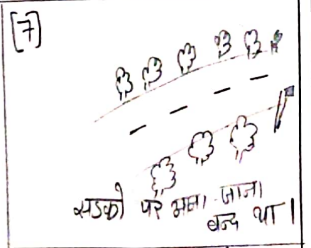 [7]
सडको पर आना जाना
बन्द था।